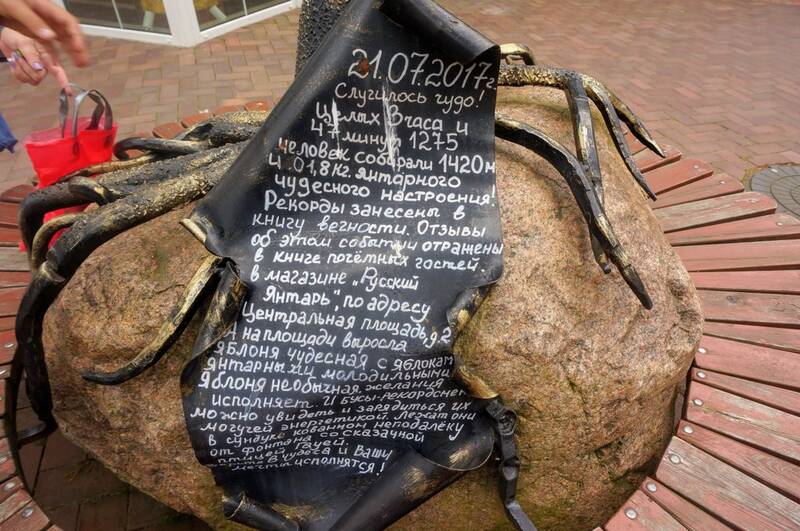 21.07.2017г.
Случилось чудо!
Целых 3 часа и
47 минут 1275
человек собирали 1420 м
и 01,8 кг. янтарного
чудесного настроения!
Рекорды занесены в
книгу вечности. Отзывы
об этом событии отражены
в книге почётных гостей
в магазине „Русский
Янтарь" по адресу
Центральная площадь, д.2
А на площади выросла
яблоня чудесная с яблоками
янтарными молодильными
Яблоня необычная желания
исполняет. И бусы-рекордсмены
можно увидеть и зарядиться их
могучей энергетикой. Лежат они
в сундуке кованном неподалёку
от фонтана со сказочной
птицей Гауей.
в чудеса и Ваши
мечты исполнятся!